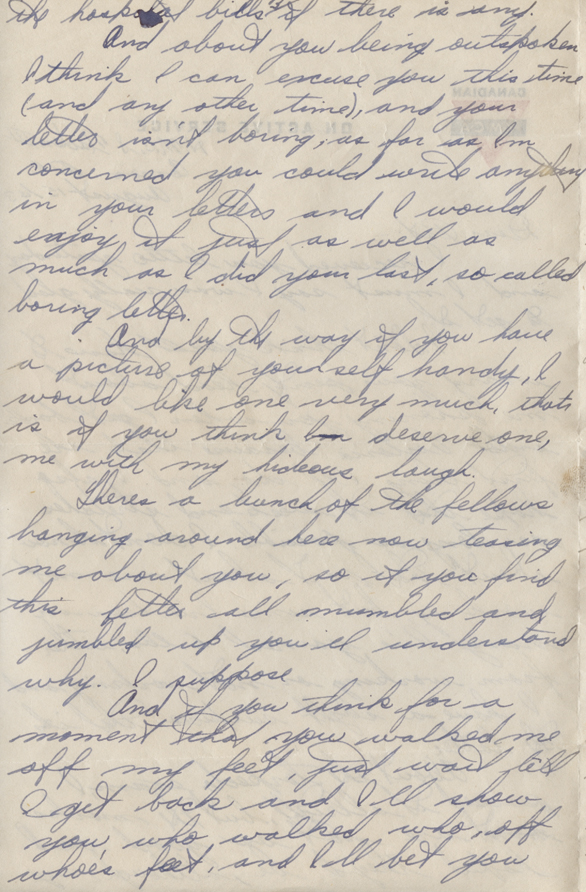 the hospital bills if there is any.
And about you being outspoken
I think I can excuse you this time
(and any other time), and your
letter isn't boring, as far as I'm
concerned you could write anything
in your letters and I would
enjoy it just as well as
much as I did your last, so called
boring letter.
And by the way if you have
a picture of yourself handy, I
would like one very much, thats
is if you think I deserve one,
me with my hideous laugh.
Theres a bunch of the fellows
hanging around here now teasing
me about you, so if you find
this letter all mumbled and
jumbled up you'll understand
why. I suppose
And if you think for a
moment that you walked me
off my feet, just wait till
I get back and I'll show
you who walked who, off
whoe's feet, and I'll bet you
CANADIAN
ON ACTIVE SERVICE